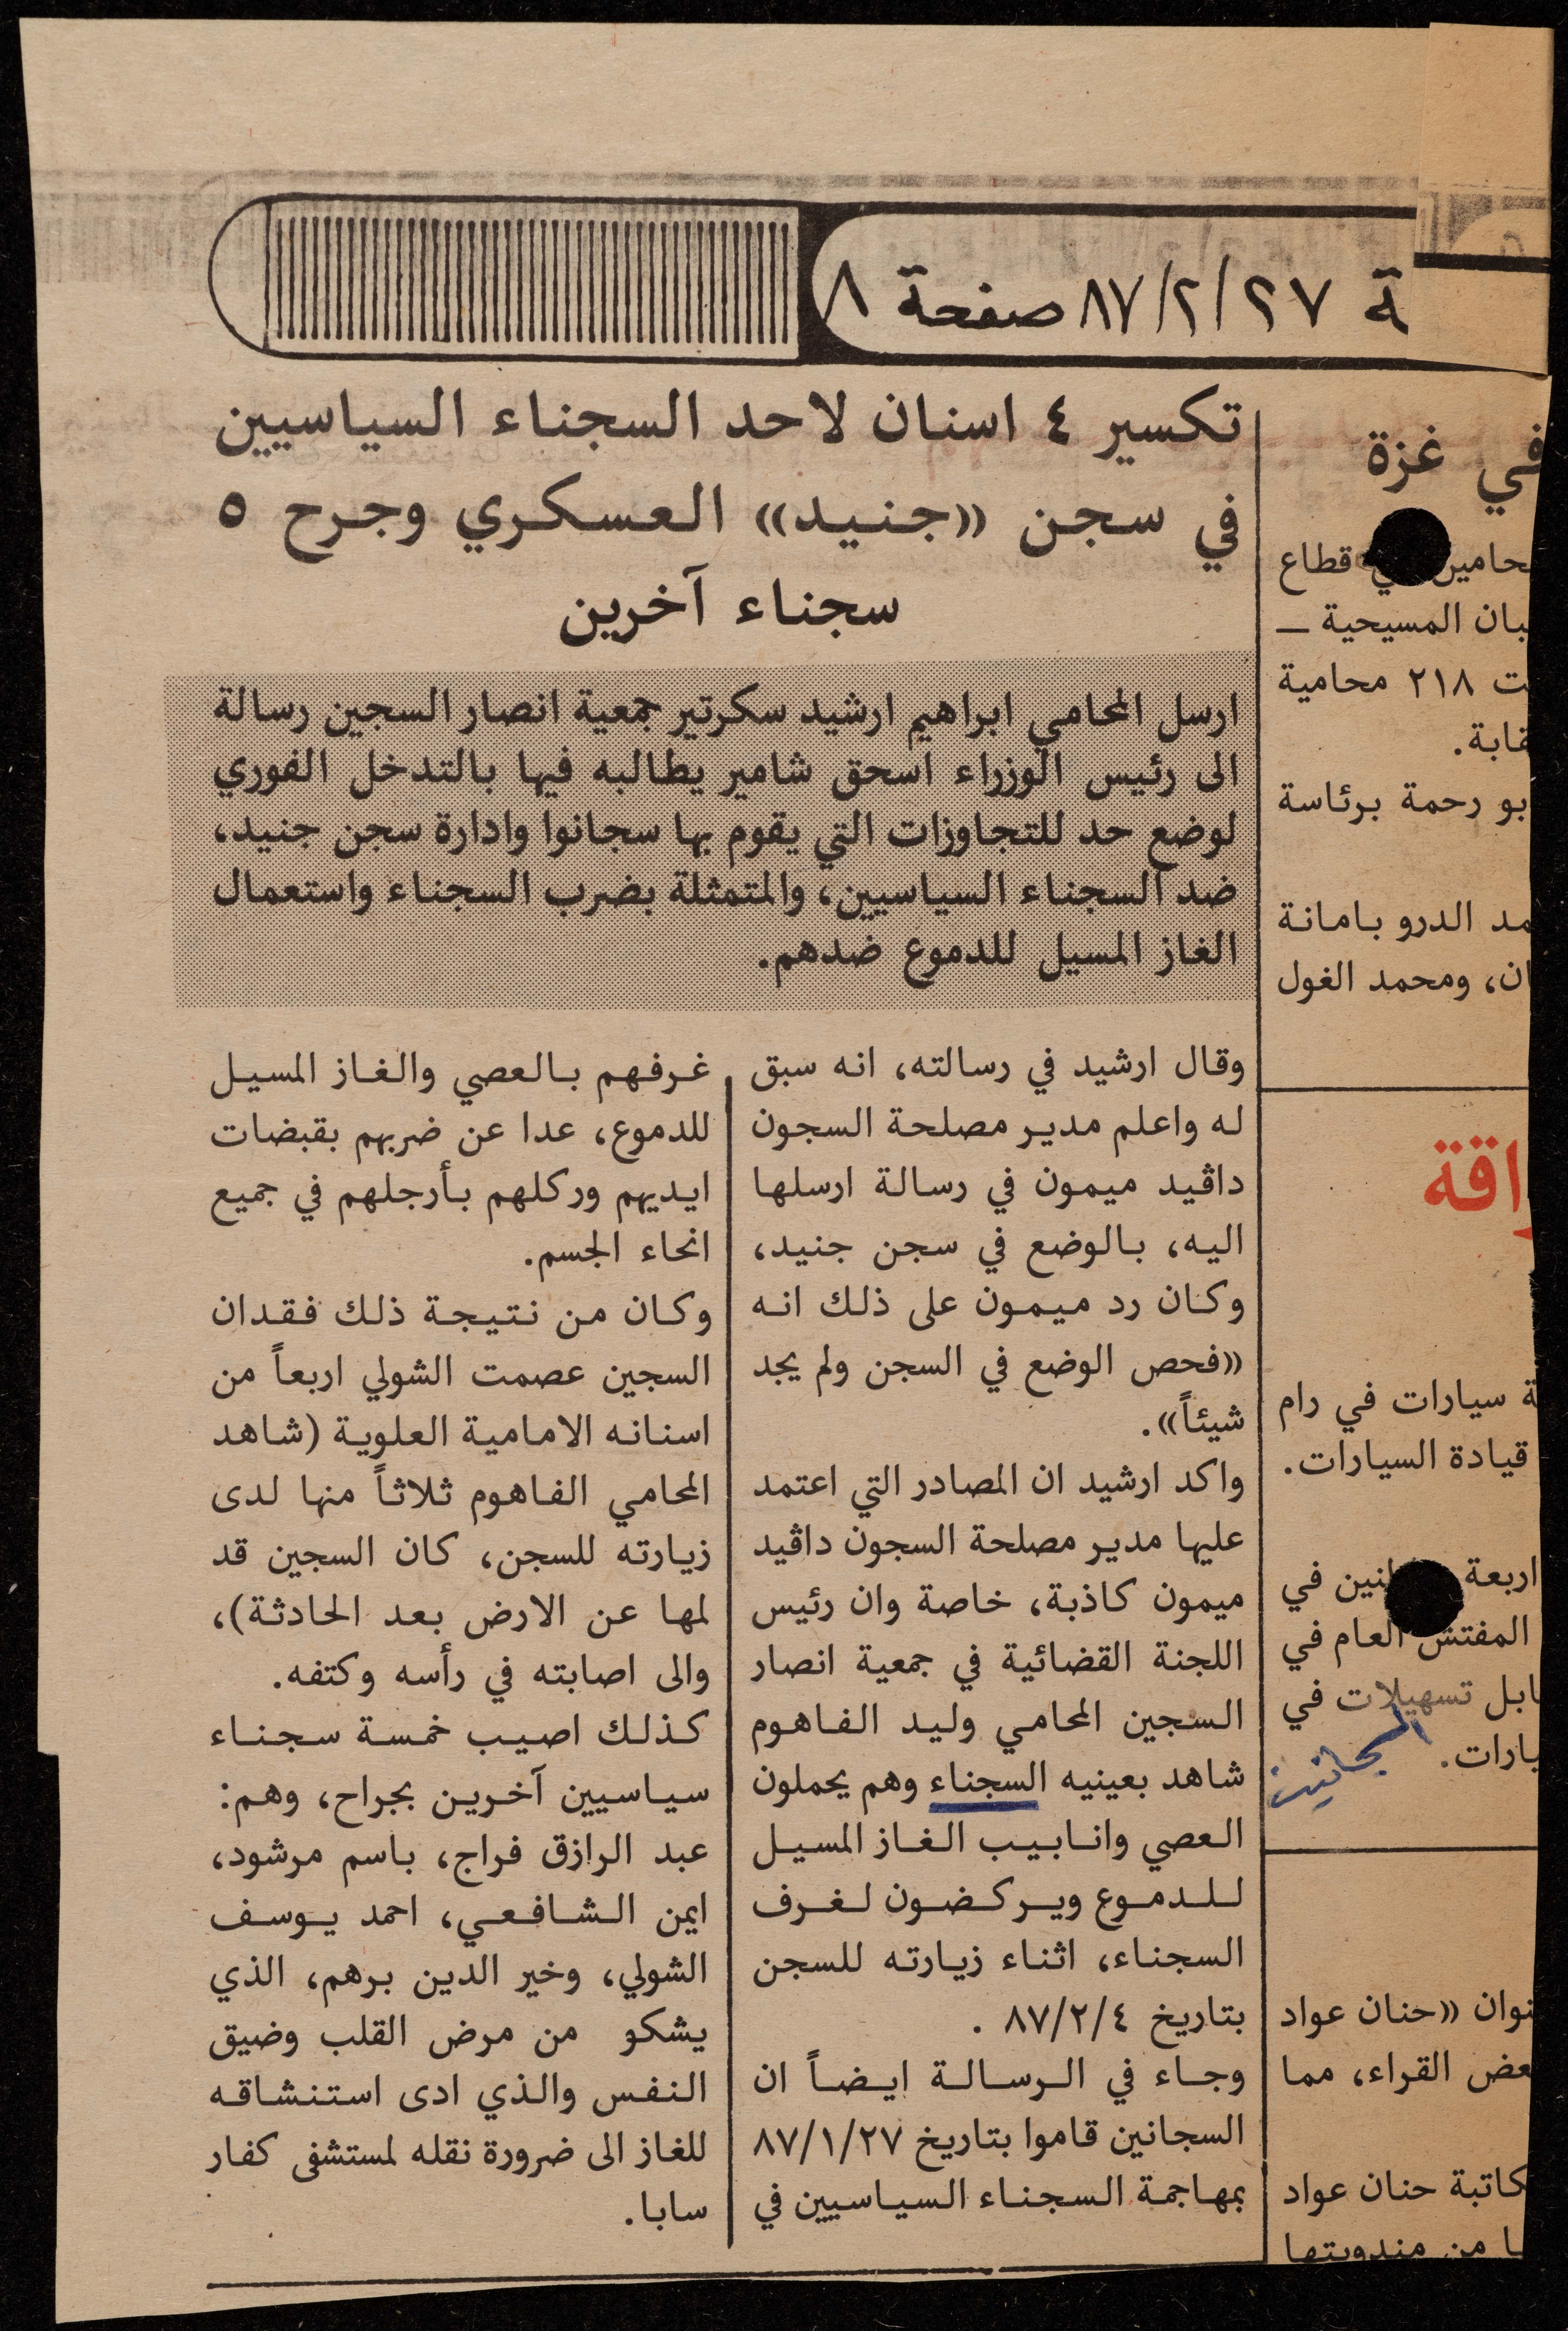 ة ٨٧/٢/٢٧ صفحة ٨
تكسير ٤ اسنان لاحد السجناء السياسيين
في سجن «جنيد» العسكري وجرح ٥
سجناء آخرين
ارسل المحامي ابراهيم ارشيد سكرتير جمعية انصار السجين رسالة
الى رئيس الوزراء اسحق شامير يطالبه فيها بالتدخل الفوري
لوضع حد للتجاوزات التي يقوم بها سجانوا وادارة سجن جنيد،
ضد السجناء السياسيين، والمتمثلة بضرب السجناء واستعمال
الغاز المسيل للدموع ضدهم.
وقال ارشيد في رسالته، انه سبق
له واعلم مدير مصلحة السجون
داڤيد ميمون في رسالة ارسلها
اليه، بالوضع في سجن جنيد،
وكان رد ميمون على ذلك انه
«فحص الوضع في السجن ولم يجد
شيئاً».
واكد ارشيد ان المصادر التي اعتمد
عليها مدير مصلحة السجون داڤيد
ميمون كاذبة، خاصة وان رئيس
اللجنة القضائية في جمعية انصار
السجين المحامي وليد الفاهوم
شاهد بعينيه السجناء وهم يحملون
العصي وانابيب الغاز المسيل
للدموع ويركضون لغرف
السجناء، اثناء زيارته للسجن
بتاريخ ٨٧/٢/٤ .
وجاء في الرسالة ايضاً ان
السجانين قاموا بتاريخ ٨٧/١/٢٧
بمهاجمة السجناء السياسيين في
غرفهم بالعصي والغاز المسيل
للدموع، عدا عن ضربهم بقبضات
ايديهم وركلهم بأرجلهم في جميع
انحاء الجسم.
وكان من نتيجة ذلك فقدان
السجين عصمت الشولي اربعاً من
اسنانه الامامية العلوية (شاهد
المحامي الفاهوم ثلاثاً منها لدى
زيارته للسجن، كان السجين قد
لمها عن الارض بعد الحادثة)،
والى اصابته في رأسه وكتفه.
كذلك اصيب خمسة سجناء
سياسيين آخرين بجراح، وهم:
عبد الرازق فراج، باسم مرشود،
ايمن الشافعي، احمد يوسف
الشولي، وخير الدين برهم، الذي
يشكو من مرض القلب وضيق
النفس والذي ادى استنشاقه
للغاز الى ضرورة نقله لمستشفى كفار
سابا.
في غزة
قطاع
بان المسيحية ــ
ت ٢١٨ محامية
قابة.
بو رحمة برئاسة
مد الدرو بامانة
ان، ومحمد الغول
اقة
ة سيارات في رام
قيادة السيارات.
اربعة في
المفتش العام في
ابل تسهيلات في
يارات.
السجانين
نوان «حنان عواد
عض القراء، مما
كاتبة حنان عواد
ا من مندوبتها